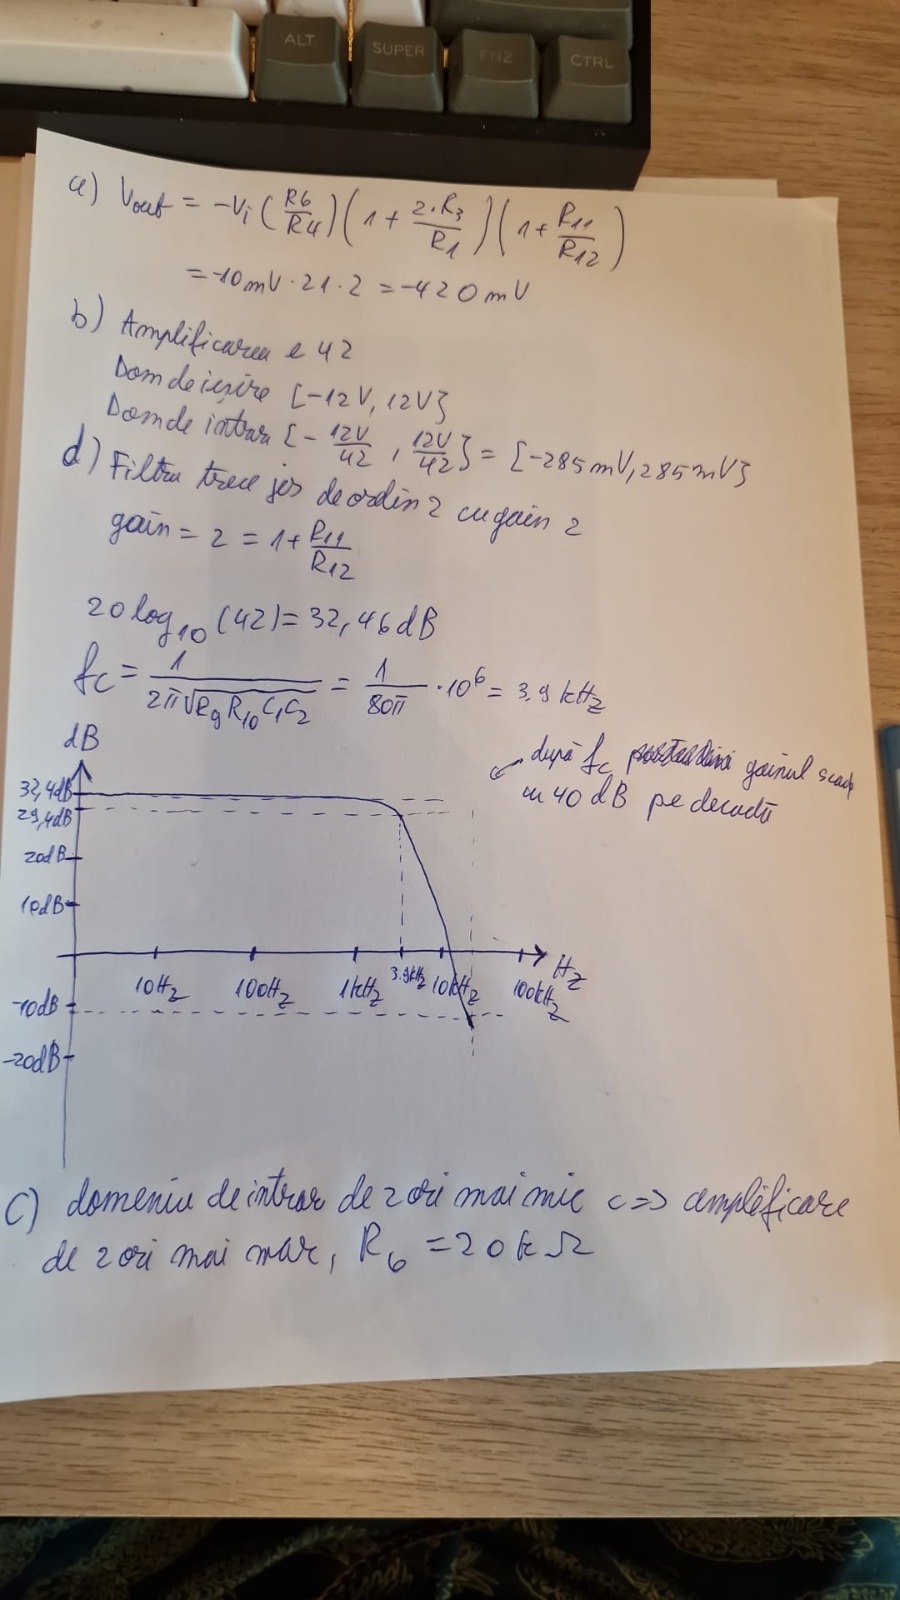 ALT
SUPER
FN2
CTRL
a) Vout = -Vi (R6/R4)(1 + 2·R3/R1)(1 + R11/R12)
= -10mV · 21 · 2 = -420mV
b) Amplificarea e 42
Dom de ieșire [-12V, 12V]
Dom de intrar [-12V/42, 12V/42] = [-285mV, 285mV]
d) Filtru trece jos de ordin 2 cu gain 2
gain = 2 = 1 + R11/R12
20 log10 (42) = 32,46 dB
fc = 1/(2π√(R9 R10 C1 C2)) = 1/80π · 10^6 = 3.9 kHz
dB
după fc gainul scade
cu 40 dB pe decadă
32,4dB
29,4dB
20dB
10dB
10Hz 100Hz 1kHz 3.9kHz 10kHz 100kHz Hz
-10dB
-20dB
c) domeniu de intrar de 2 ori mai mic <=> amplificare
de 2 ori mai mar, R6 = 20kΩ